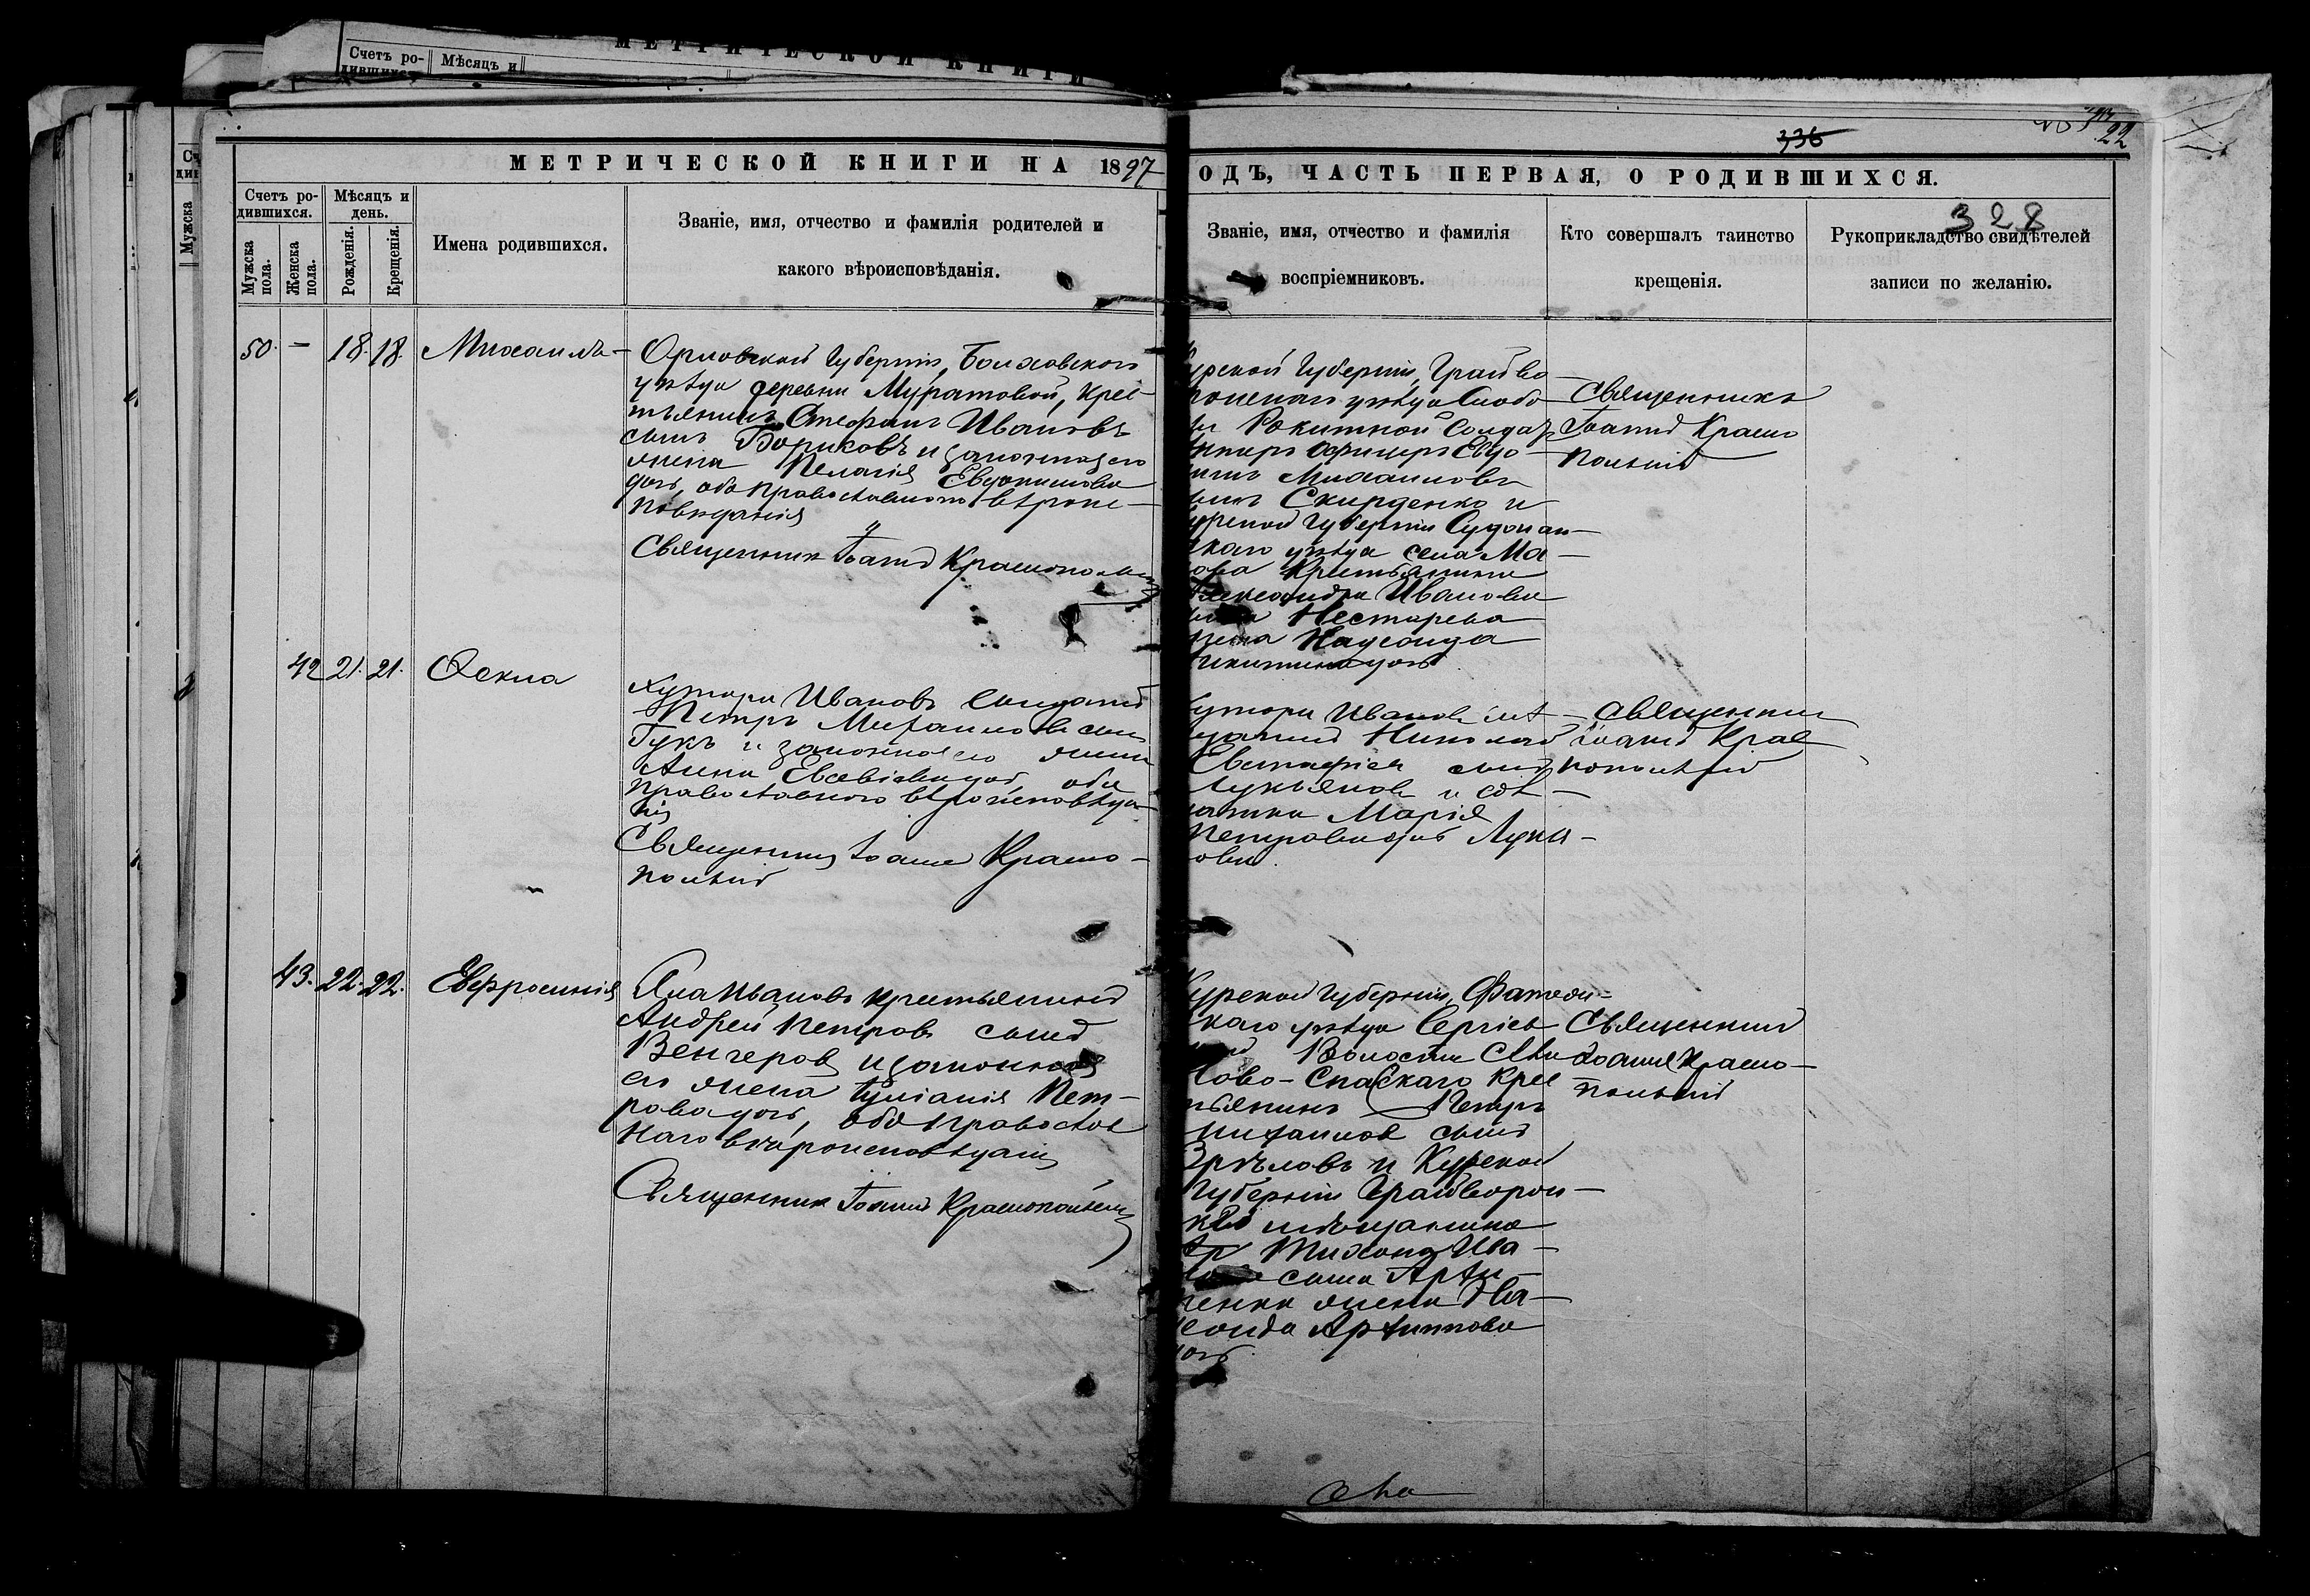 МЕТРИЧЕСКОЙ КНИГИ
Счетъ ро-
дившихся
Мѣсяцъ и
Мужска
336
22
МЕТРИЧЕСКОЙ КНИГИ НА 1897
ОДЪ, ЧАСТЬ ПЕРВАЯ, О РОДИВШИХСЯ.
328
Счетъ ро-
дившихся.
Мужска
пола.
Женска
пола.
Мѣсяцъ и
день.
Рожденія.
Крещенія.
Имена родившихся.
Званіе, имя, отчество и фамилія родителей и
какого вѣроисповѣданія.
Званіе, имя, отчество и фамилія
воспріемниковъ.
Кто совершалъ таинство
крещенія.
Рукоприкладство свидѣтелей
записи по желанію.
50. — 18. 18. Михаилъ
Орловской Губерніи, Болховского
уѣзда деревни Муратовой, крес-
тьянинъ Стефанъ Ивановъ
сынъ Бориковъ и законная его
жена Пелагія Евдокимова
дочь, оба православного вѣроис-
повѣданія
Священник Іоаннъ Краснопольскій
урской Губерніи, Грайво
ронскаго уѣзда Слобо
Ракитной Солдат
унтеръ офицеръ Евдо
Михаиловъ
Скирденко и
урской Губерніи Суджан-
скаго уѣзда села Ма-
Крестьянина
лександра Иванова
Нестерева
жена Надежда
Никитина дочь
Священникъ
Іоаннъ Красно
польскій
42 21. 21. Ѳекла
Хутора Ивановъ
Петръ Михаиловъ сынъ
Гукъ и законная его жена
Анна дочь, оба
православного вѣроисповѣда-
нія
Священникъ Іоаннъ Красно-
польскій
утора Иванов мѣ-
щанинъ Николай
Евстафіев сынъ
Лукьянов и
Марія
Петровна дочь Лукья-
нова
Священник
Іоаннъ Крас
нопольскій
43. 22. 22. Евфросинія
Андрей Петров сынъ
Венгеров и законная
его жена Іуліанія Пет-
рова дочь, оба православ
наго вѣроисповѣданія
Священник Іоаннъ Краснопольскій
урской Губерніи, Фатеж-
скаго уѣзда Сергіев
Волости
ново-Спасскаго Крес
тьянинъ Петръ
михаилов сынъ
и Курской
Губерніи Грайворон-
мѣщанина
Тихона Ива-
сына Арти-
жена На-
Артиппова
дочь
Священник
Іоаннъ Красно-
польскій